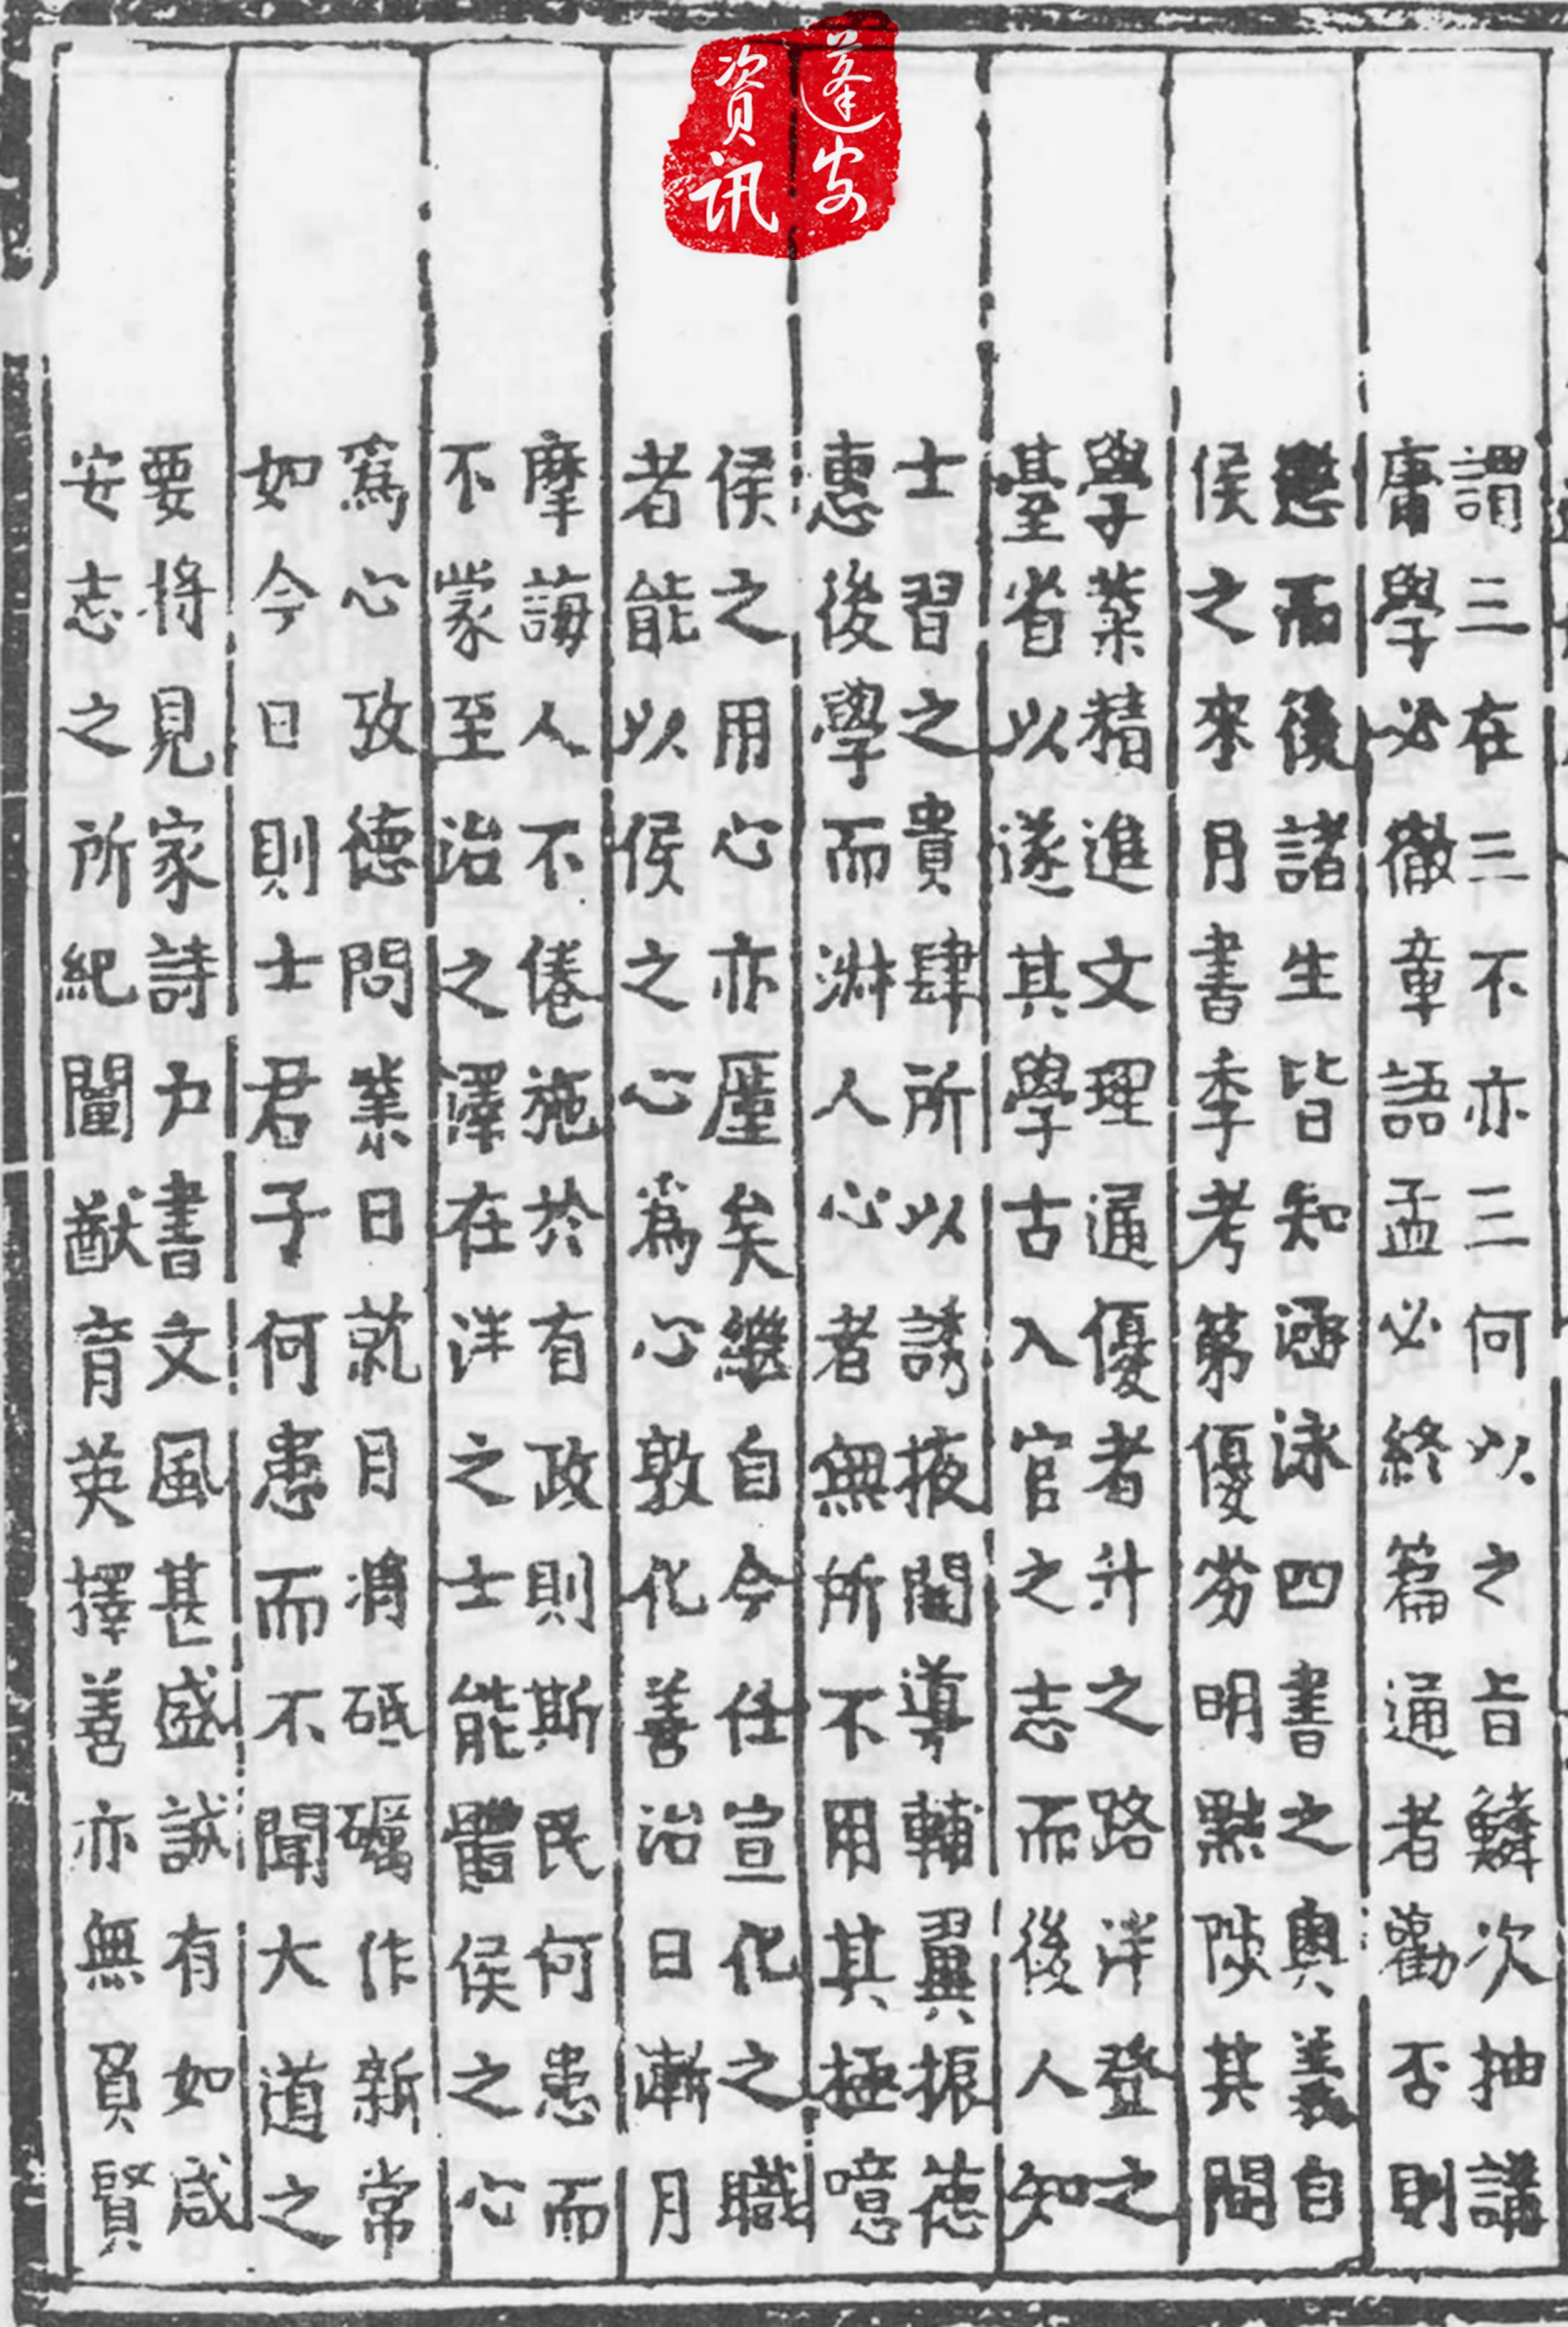 蓬安
資訊
謂三在三不亦三何以之旨鱗次抽講
庸學必徹章語孟必終篇通者勸否則
懲而後諸生皆知涵泳四書之奧義自
侯之來月書季考第優劣明黜陟其間
學業精進文理通優者升之路洋登之
臺省以遂其學古入官之志而後人知
士習之貴肆所以誘掖開導輔翼振德
惠後學而淋人心者無所不用其極噫
侯之用心亦廑矣繼自今任宣化之職
者能以侯之心為心敦化善治日漸月
摩誨人不倦施於有政則斯民何患而
不蒙至治之澤在泮之士能體侯之心
為心攷德問業日就月將砥礪作新常
如今日則士君子何患而不聞大道之
要將見家詩戶書文風甚盛誠有如咸
安志之所紀闡猷育英擇善亦無負賢